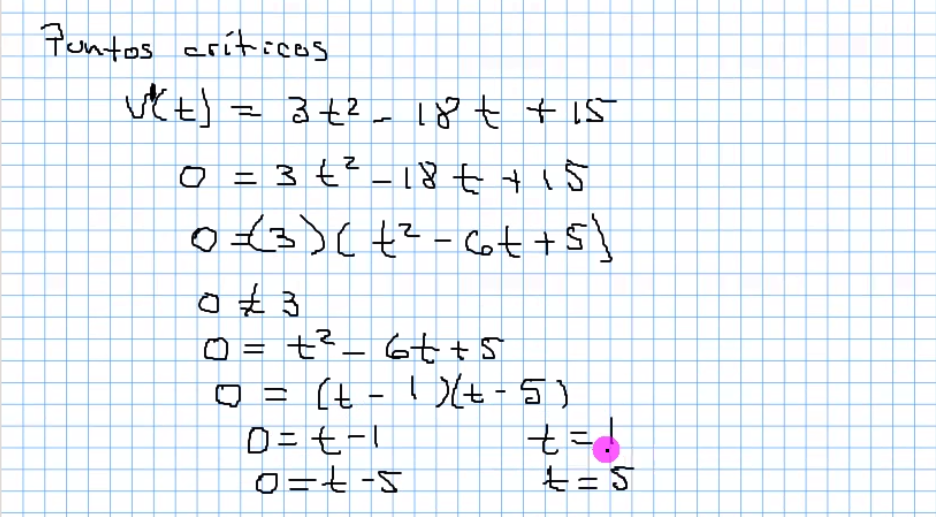 Puntos críticos
V'(t) = 3t² - 18t + 15
0 = 3t² - 18t + 15
0 = (3)(t² - 6t + 5)
0 ≠ 3
0 = t² - 6t + 5
0 = (t - 1)(t - 5)
0 = t - 1 t = 1
0 = t - 5 t = 5